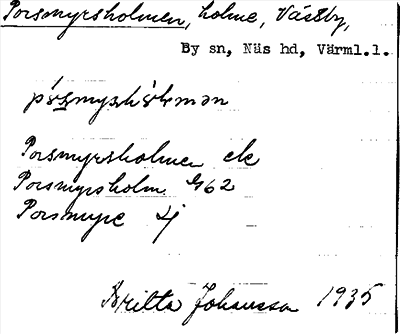 Porsmyrsholmen, holme, Västby,
By sn, Näs hd, Värml.l.
Porsmyrsholmen ek
Porsmyrsholm G62
Porsmyre
Britta Johansson 1935